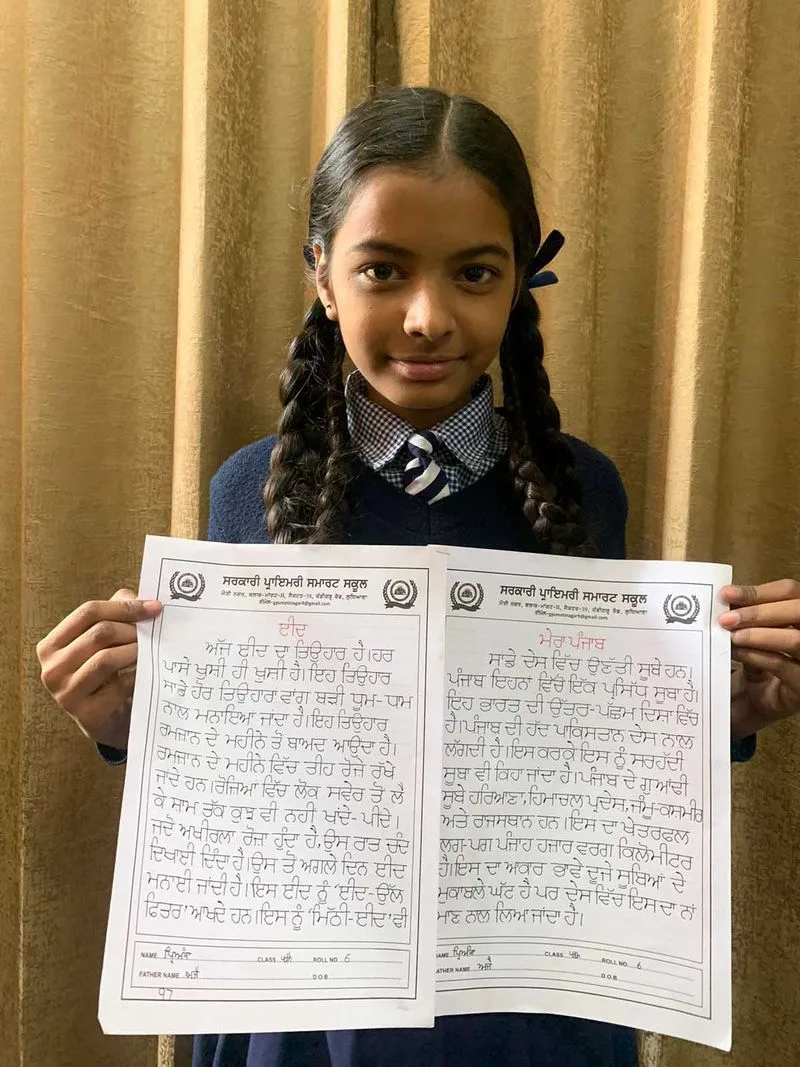 ਸਰਕਾਰੀ ਪ੍ਰਾਇਮਰੀ ਸਮਾਰਟ ਸਕੂਲ
ਮੋਤੀ ਨਗਰ, ਬਲਾਕ-ਮਾਂਗਟ-II, ਸੈਕਟਰ-39, ਚੰਡੀਗੜ੍ਹ ਰੋਡ, ਲੁਧਿਆਣਾ
ਈਮੇਲ-gpsmotinagar9@gmail.com
ਈਦ
ਅੱਜ ਈਦ ਦਾ ਤਿਉਹਾਰ ਹੈ।ਹਰ
ਪਾਸੇ ਖੁਸ਼ੀ ਹੀ ਖੁਸ਼ੀ ਹੈ।ਇਹ ਤਿਉਹਾਰ
ਸਾਡੇ ਹੋਰ ਤਿਉਹਾਰਾਂ ਵਾਂਗ ਬੜੀ ਧੂਮ-ਧਾਮ
ਨਾਲ ਮਨਾਇਆ ਜਾਂਦਾ ਹੈ।ਇਹ ਤਿਉਹਾਰ
ਰਮਜ਼ਾਨ ਦੇ ਮਹੀਨੇ ਤੋਂ ਬਾਅਦ ਆਉਂਦਾ ਹੈ।
ਰਮਜ਼ਾਨ ਦੇ ਮਹੀਨੇ ਵਿੱਚ ਤੀਹ ਰੋਜ਼ੇ ਰੱਖੇ
ਜਾਂਦੇ ਹਨ।ਰੋਜ਼ਿਆਂ ਵਿੱਚ ਲੋਕ ਸਵੇਰ ਤੋਂ ਲੈ
ਕੇ ਸ਼ਾਮ ਤੱਕ ਕੁਝ ਵੀ ਨਹੀਂ ਖਾਂਦੇ-ਪੀਂਦੇ।
ਜਦੋਂ ਅਖੀਰਲਾ ਰੋਜ਼ਾ ਹੁੰਦਾ ਹੈ,ਉਸ ਰਾਤ ਚੰਦ
ਦਿਖਾਈ ਦਿੰਦਾ ਹੈ।ਉਸ ਤੋਂ ਅਗਲੇ ਦਿਨ ਈਦ
ਮਨਾਈ ਜਾਂਦੀ ਹੈ।ਇਸ ਈਦ ਨੂੰ 'ਈਦ-ਉੱਲ
ਫਿਤਰ' ਆਖਦੇ ਹਨ।ਇਸ ਨੂੰ 'ਮਿੱਠੀ-ਈਦ' ਵੀ
NAME ਪ੍ਰਿਅੰਕਾ CLASS 4th ROLL NO. 6
FATHER NAME ਅਜੈ D.O.B
97
ਸਰਕਾਰੀ ਪ੍ਰਾਇਮਰੀ ਸਮਾਰਟ ਸਕੂਲ
ਮੋਤੀ ਨਗਰ, ਬਲਾਕ-ਮਾਂਗਟ-II, ਸੈਕਟਰ-39, ਚੰਡੀਗੜ੍ਹ ਰੋਡ, ਲੁਧਿਆਣਾ
ਈਮੇਲ-gpsmotinagar9@gmail.com
ਮੇਰਾ ਪੰਜਾਬ
ਸਾਡੇ ਦੇਸ ਵਿੱਚ ਉਣੱਤੀ ਸੂਬੇ ਹਨ।
ਪੰਜਾਬ ਇਹਨਾਂ ਵਿੱਚੋਂ ਇੱਕ ਪ੍ਰਸਿੱਧ ਸੂਬਾ ਹੈ।
ਇਹ ਭਾਰਤ ਦੀ ਉੱਤਰ-ਪੱਛਮ ਦਿਸ਼ਾ ਵਿੱਚ
ਹੈ।ਪੰਜਾਬ ਦੀ ਹੱਦ ਪਾਕਿਸਤਾਨ ਦੇਸ ਨਾਲ
ਲੱਗਦੀ ਹੈ।ਇਸ ਕਰਕੇ ਇਸ ਨੂੰ ਸਰਹੱਦੀ
ਸੂਬਾ ਵੀ ਕਿਹਾ ਜਾਂਦਾ ਹੈ।ਪੰਜਾਬ ਦੇ ਗੁਆਂਢੀ
ਸੂਬੇ ਹਰਿਆਣਾ,ਹਿਮਾਚਲ ਪ੍ਰਦੇਸ,ਜੰਮੂ-ਕਸ਼ਮੀਰ
ਅਤੇ ਰਾਜਸਥਾਨ ਹਨ।ਇਸ ਦਾ ਖੇਤਰਫਲ
ਲਗ-ਪਗ ਪੰਜਾਹ ਹਜ਼ਾਰ ਵਰਗ ਕਿਲੋਮੀਟਰ
ਹੈ।ਇਸ ਦਾ ਅਕਾਰ ਭਾਵੇਂ ਦੂਜੇ ਸੂਬਿਆਂ ਦੇ
ਮੁਕਾਬਲੇ ਘੱਟ ਹੈ ਪਰ ਦੇਸ ਵਿੱਚ ਇਸ ਦਾ ਨਾਂ
ਮਾਣ ਨਾਲ ਲਿਆ ਜਾਂਦਾ ਹੈ।
NAME ਪ੍ਰਿਅੰਕਾ CLASS 4th ROLL NO. 6
FATHER NAME ਅਜੈ D.O.B